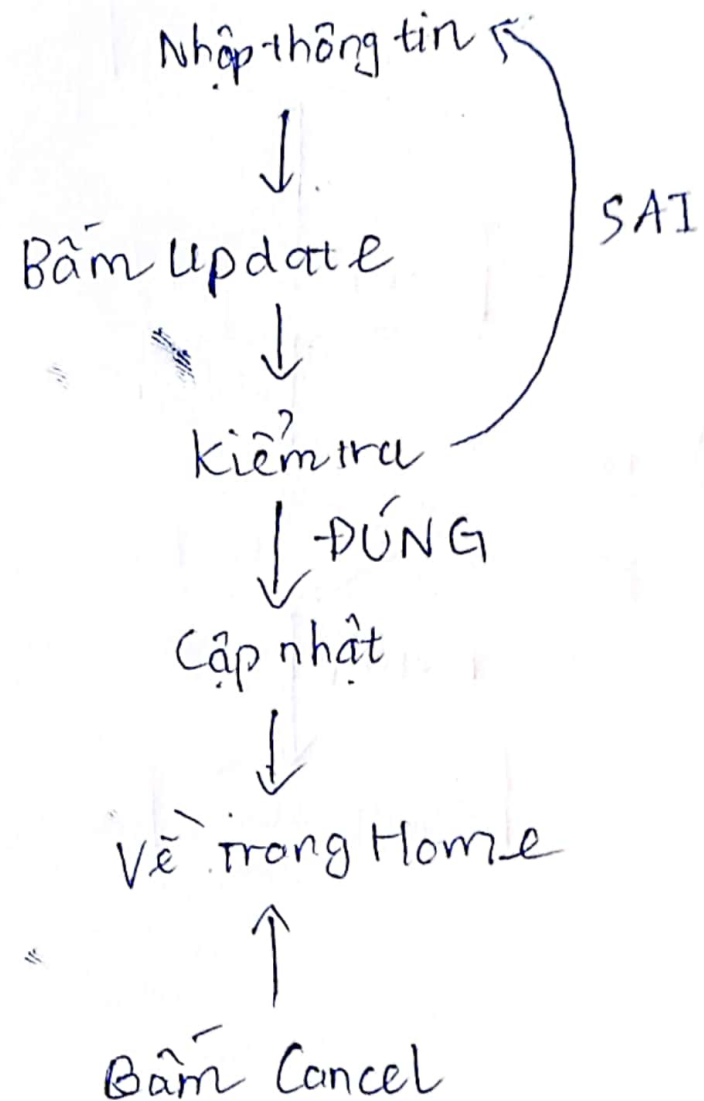 Nhập thông tin
SAI
Bấm Update
Kiểm tra
ĐÚNG
Cập nhật
Về Trang Home
Bấm Cancel